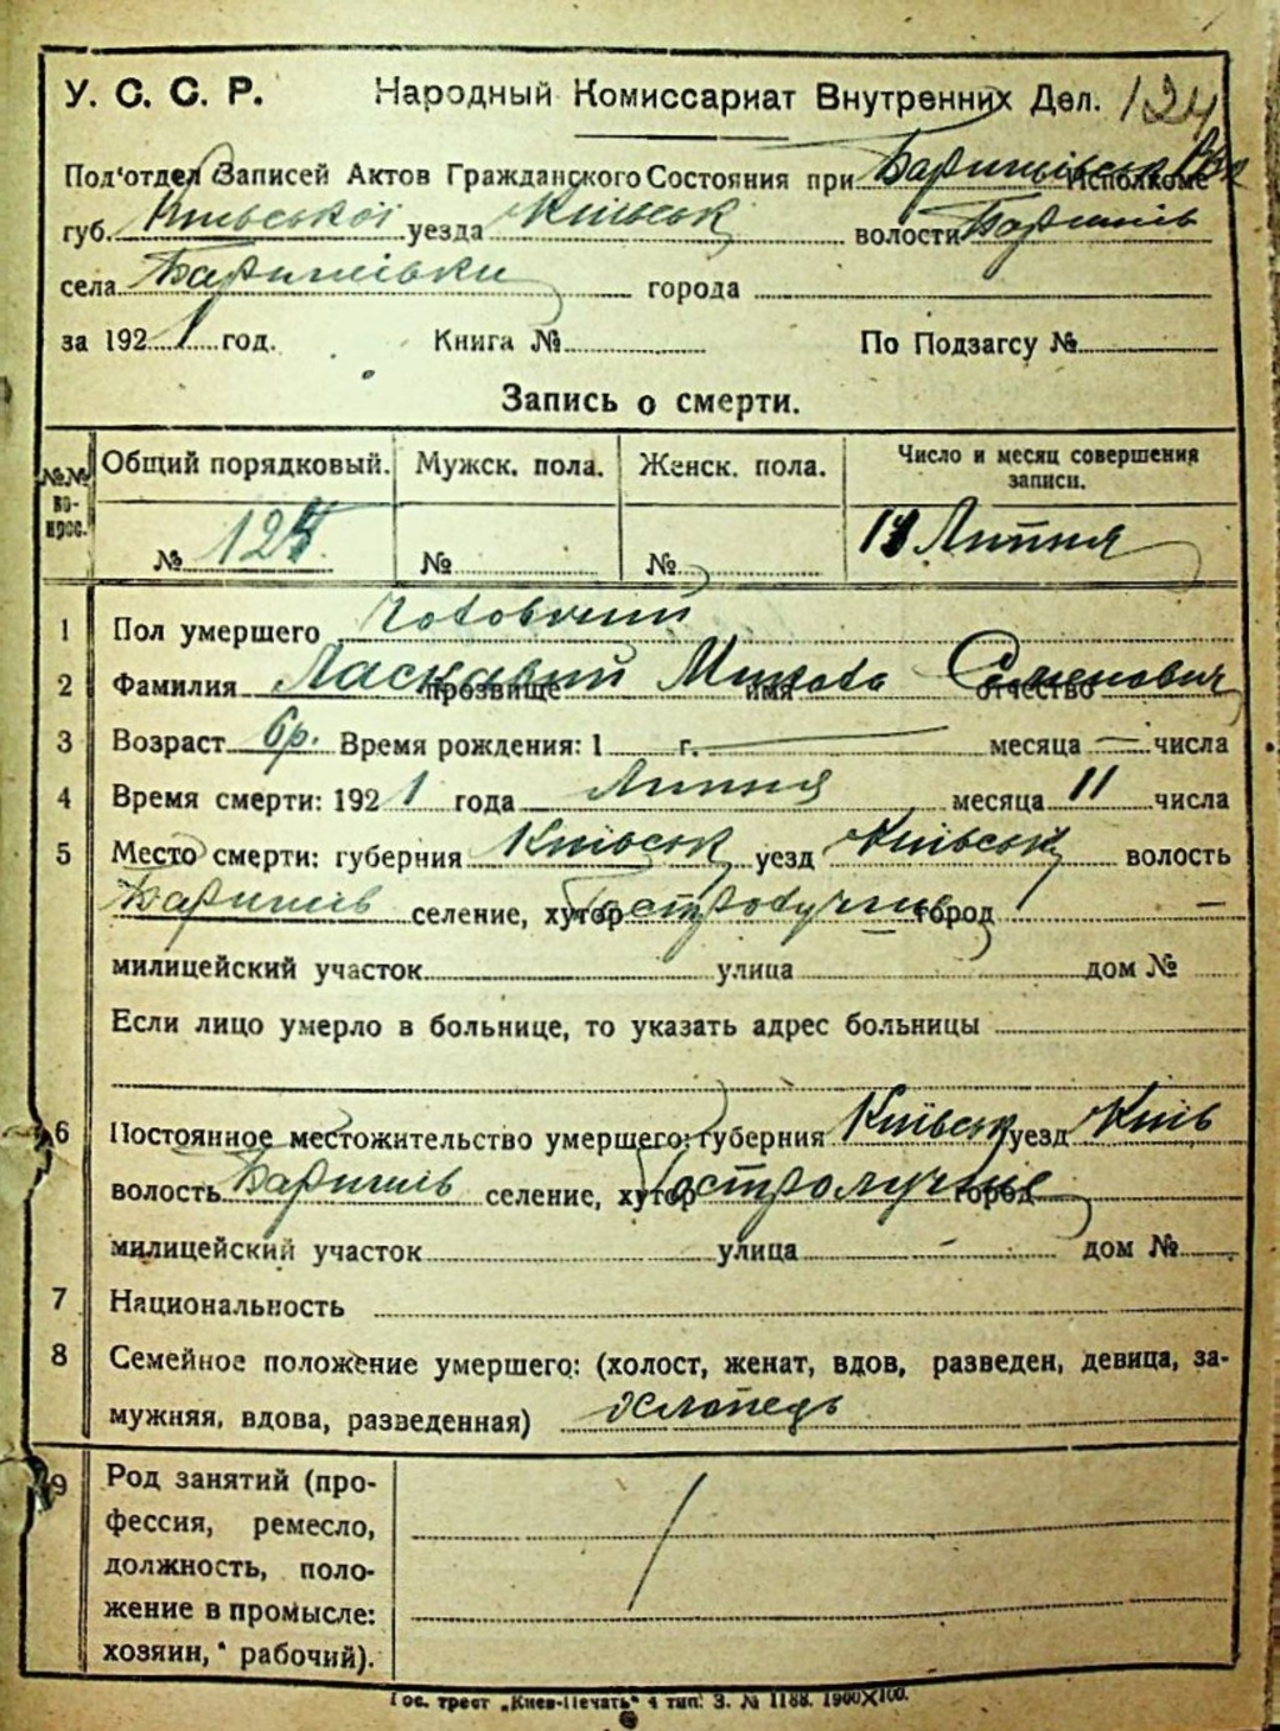 У. С. С. Р. Народный Комиссариат Внутренних Дел. 124
Под'отдел Записей Актов Гражданского Состояния при Баришівськ Исполкоме
губ. Київської уезда Київськ волости Баришів
села Баришівки города
за 1921 год. Книга № По Подзагсу №
Запись о смерти.
№№ вопрос. Общий порядковый. Мужск. пола. Женск. пола. Число и месяц совершения записи.
№ 124 № № Липня
1 Пол умершего Чоловичий
2 Фамилия Ласкавий прозвище Микола имя Семенович отчество
3 Возраст 6р. Время рождения: 1 г. — месяца — числа
4 Время смерти: 1921 года Липня месяца 11 числа
5 Место смерти: губерния Київськ уезд Київськ волость
Баришів селение, хутор Гостролуччє город —
милицейский участок улица дом №
Если лицо умерло в больнице, то указать адрес больницы
6 Постоянное местожительство умершего: губерния Київськ уезд Київ
волость Баришів селение, хутор Гостролуччє город
милицейский участок улица — дом №
7 Национальность
8 Семейное положение умершего: (холост, женат, вдов, разведен, девица, за-
мужняя, вдова, разведенная) Хлопець
9 Род занятий (про-
фессия, ремесло,
должность, поло-
жение в промысле:
хозяин, рабочий).
Гос. трест „Киев-Печать" 4 тип. З. № 1188. 1900×100.